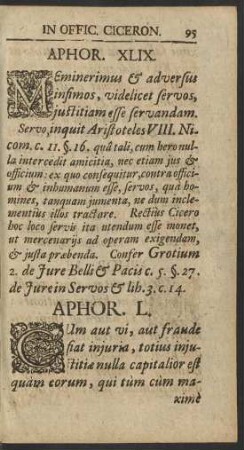 IN OFFIC. CICERON. 95
APHOR. XLIX.
MEminerimus & adversus
infimos, videlicet servos,
justitiam esse servandam.
Servo, inquit Aristoteles VIII. Ni-
com. c. 11. §. 16. quâ tali, cum hero nul-
la intercedit amicitia, nec etiam jus &
officium: ex quo consequitur, contra offici-
um & inhumanum esse, servos, quà ho-
mines, tanquam jumenta, ne dum incle-
mentius illos tractare. Rectius Cicero
hoc loco servis ita utendum esse monet,
ut mercenarijs ad operam exigendam,
& justa præbenda. Confer Grotium
2. de Jure Belli & Pacis c. 5. §. 27.
de Jure in Servos & lib. 3. c. 14.
APHOR. L.
CUm aut vi, aut fraude
fiat injuria, totius inju-
stitiæ nulla capitalior est
quàm eorum, qui tùm cùm ma-
ximè